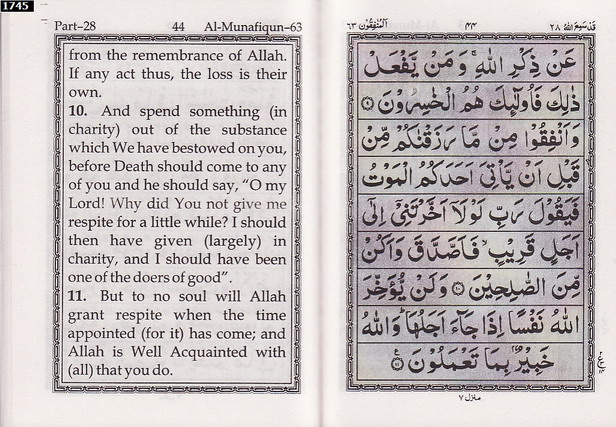 1745
Part–28 44 Al-Munafiqun–63
from the remembrance of Allah.
If any act thus, the loss is their
own.
10. And spend something (in
charity) out of the substance
which We have bestowed on you,
before Death should come to any
of you and he should say, “O my
Lord! Why did You not give me
respite for a little while? I should
then have given (largely) in
charity, and I should have been
one of the doers of good”.
11. But to no soul will Allah
grant respite when the time
appointed (for it) has come; and
Allah is Well Acquainted with
(all) that you do.
قَدْ سَمِعَ اللهُ ٢٨ ٤٤ اَلْمُنٰفِقُوْنَ ٦٣
عَنْ ذِكْرِ اللهِ ۚ وَ مَنْ يَّفْعَلْ
ذٰلِكَ فَاُولٰٓئِكَ هُمُ الْخٰسِرُوْنَ ۹
وَ اَنْفِقُوْا مِنْ مَّا رَزَقْنٰكُمْ مِّنْ
قَبْلِ اَنْ يَّاْتِيَ اَحَدَكُمُ الْمَوْتُ
فَيَقُوْلَ رَبِّ لَوْلَاۤ اَخَّرْتَنِيْۤ اِلٰۤى
اَجَلٍ قَرِيْبٍ ۙ فَاَصَّدَّقَ وَ اَكُنْ
مِّنَ الصّٰلِحِيْنَ ۱۰ وَ لَنْ يُّؤَخِّرَ
اللهُ نَفْسًا اِذَا جَآءَ اَجَلُهَا ؕ وَ اللهُ
خَبِيْرٌۢ بِمَا تَعْمَلُوْنَ ۱۱
منزل ٧